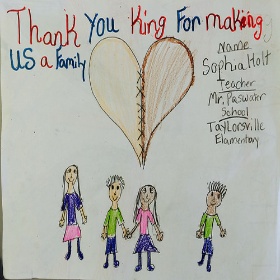 Thank You King For making
US a Family
Name
Sophia Holt
Teacher
Mr. Paswater
School
Taylorsville
Elamentary